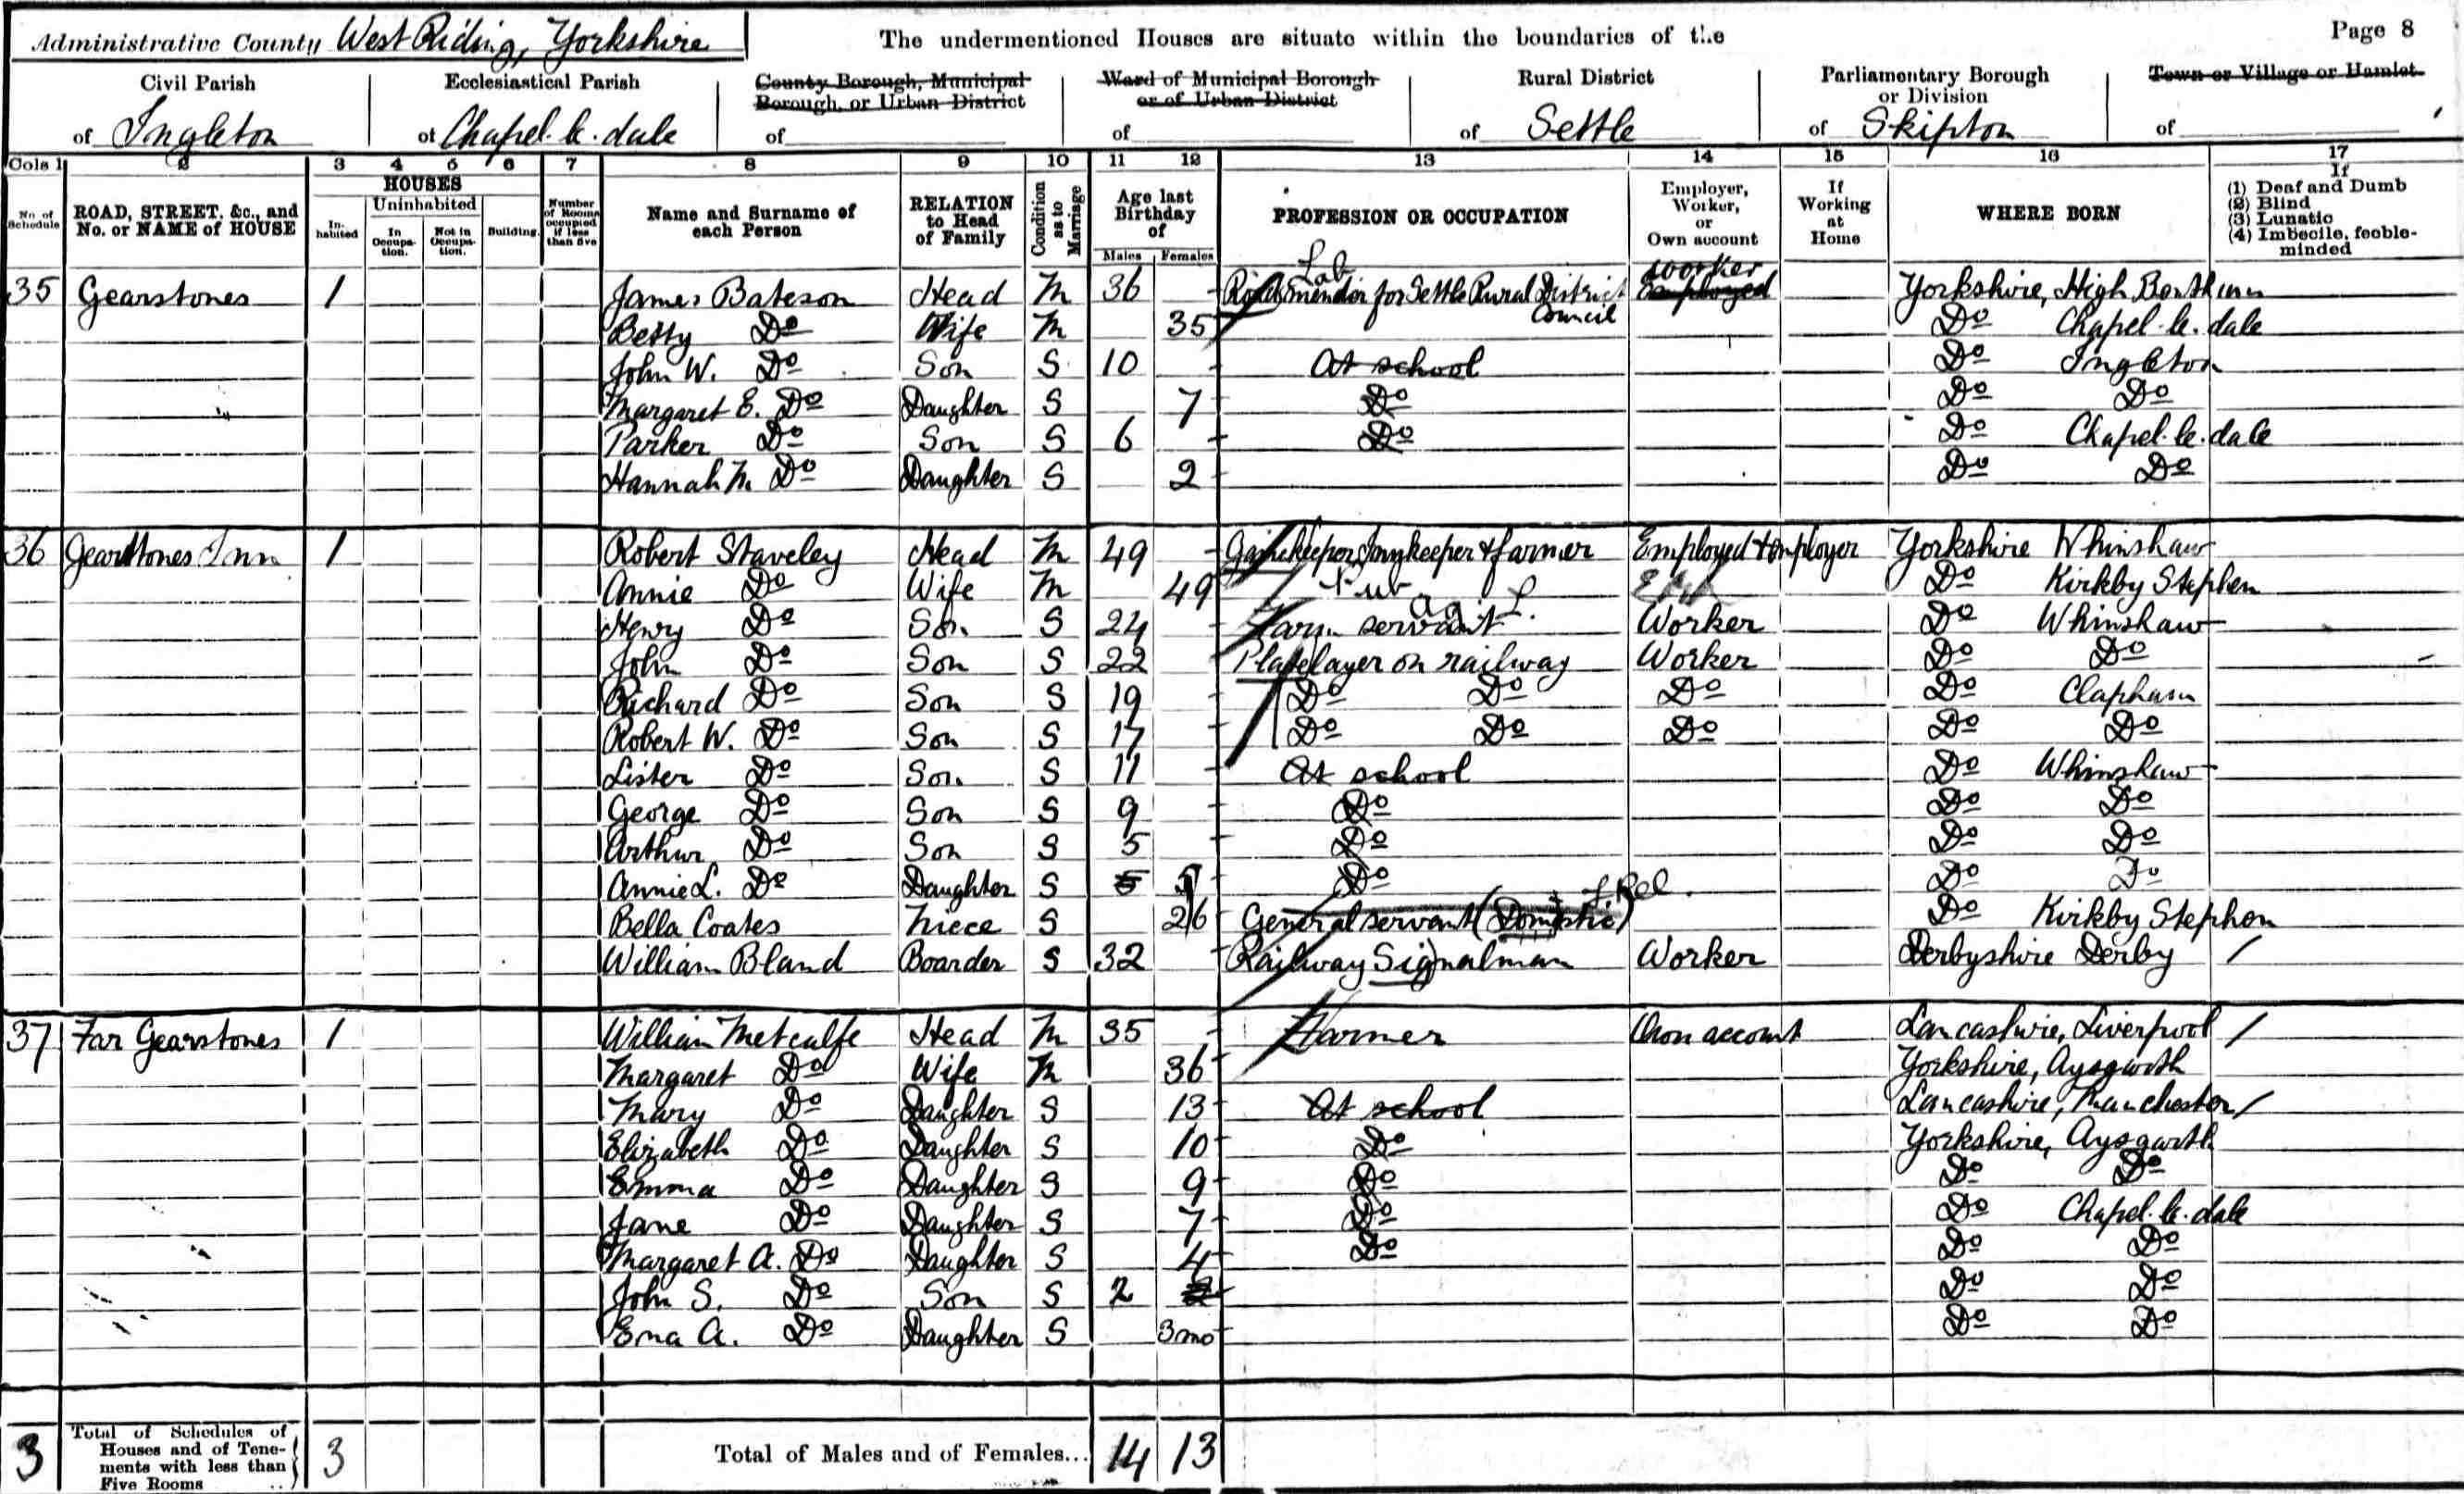 Administrative County West Riding, Yorkshire The undermentioned Houses are situate within the boundaries of the Page 8
Civil Parish of Ingleton
Ecclesiastical Parish of Chapel-le-dale
County Borough, Municipal Borough, or Urban District of
Ward of Municipal Borough or of Urban District of
Rural District of Settle
Parliamentary Borough or Division of Skipton
Town or Village or Hamlet of
Cols 1 2 3 4 5 6 7 8 9 10 11 12 13 14 15 16 17
No. of Schedule
ROAD, STREET, &c., and No. or NAME of HOUSE
HOUSES
Inhabited
Uninhabited
In Occupation.
Not in Occupation.
Building.
Number of Rooms occupied if less than five
Name and Surname of each Person
RELATION to Head of Family
Condition as to Marriage
Age last Birthday of
Males Females
PROFESSION OR OCCUPATION
Employer, Worker, or Own account
If Working at Home
WHERE BORN
If
(1) Deaf and Dumb
(2) Blind
(3) Lunatic
(4) Imbecile, feeble-minded
Lab worker
35 Gearstones 1 James Bateson Head M 36 Road mender for Settle Rural District Council Employed Yorkshire, High Bentham
Betty Do Wife M 35 Do Chapel-le-dale
John W. Do Son S 10 At school Do Ingleton
Margaret E. Do Daughter S 7 Do Do Do
Parker Do Son S 6 Do Do Chapel-le-dale
Hannah M. Do Daughter S 2 Do Do
36 Gearstones Inn 1 Robert Staveley Head M 49 Gamekeeper, Innkeeper & farmer Employed & Employer Yorkshire Whinshaw
Annie Do Wife M 49 Pub Do Kirkby Stephen
Henry Do Son S 24 Farm servant Ag L. Worker Do Whinshaw
John Do Son S 22 Platelayer on railway Worker Do Do
Richard Do Son S 19 Do Do Do Do Clapham
Robert W. Do Son S 17 Do Do Do Do Do
Lister Do Son S 11 At school Do Whinshaw
George Do Son S 9 Do Do Do
Arthur Do Son S 5 Do Do Do
Annie L. Do Daughter S 5 5 Do Do Do
Bella Coates Niece S 26 General servant (Domestic) Do Kirkby Stephen
William Bland Boarder S 32 Railway Signalman Worker Derbyshire Derby
37 Far Gearstones 1 William Metcalfe Head M 35 Farmer Own account Lancashire, Liverpool
Margaret Do Wife M 36 Yorkshire, Aysgarth
Mary Do Daughter S 13 At school Lancashire, Manchester
Elizabeth Do Daughter S 10 Do Yorkshire, Aysgarth
Emma Do Daughter S 9 Do Do Do
Jane Do Daughter S 7 Do Do Chapel-le-dale
Margaret A. Do Daughter S 4 Do Do Do
John S. Do Son S 2 2 Do Do
Ena A. Do Daughter S 3mo Do Do
3 Total of Schedules of Houses and of Tenements with less than Five Rooms 3 Total of Males and of Females... 14 13